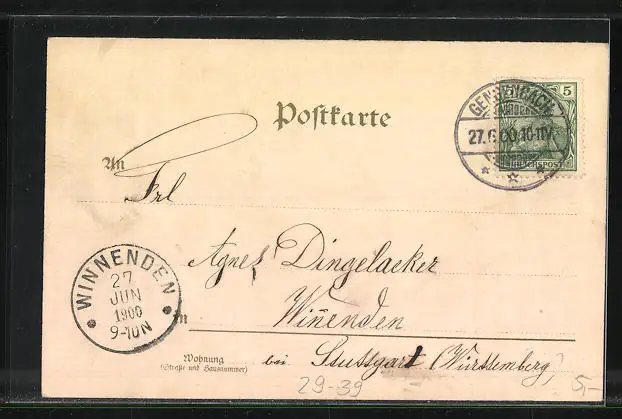 Postkarte
5
GENGENBACH
27.6.00.10-11V.
REICHSPOST
An
Frl
Agnes Dingelacker
WINNENDEN
27
JUN
1900
9-10N
in Winnenden
Wohnung
(Straße und Hausnummer)
bei Stuttgart (Württemberg)
29-39
5,-